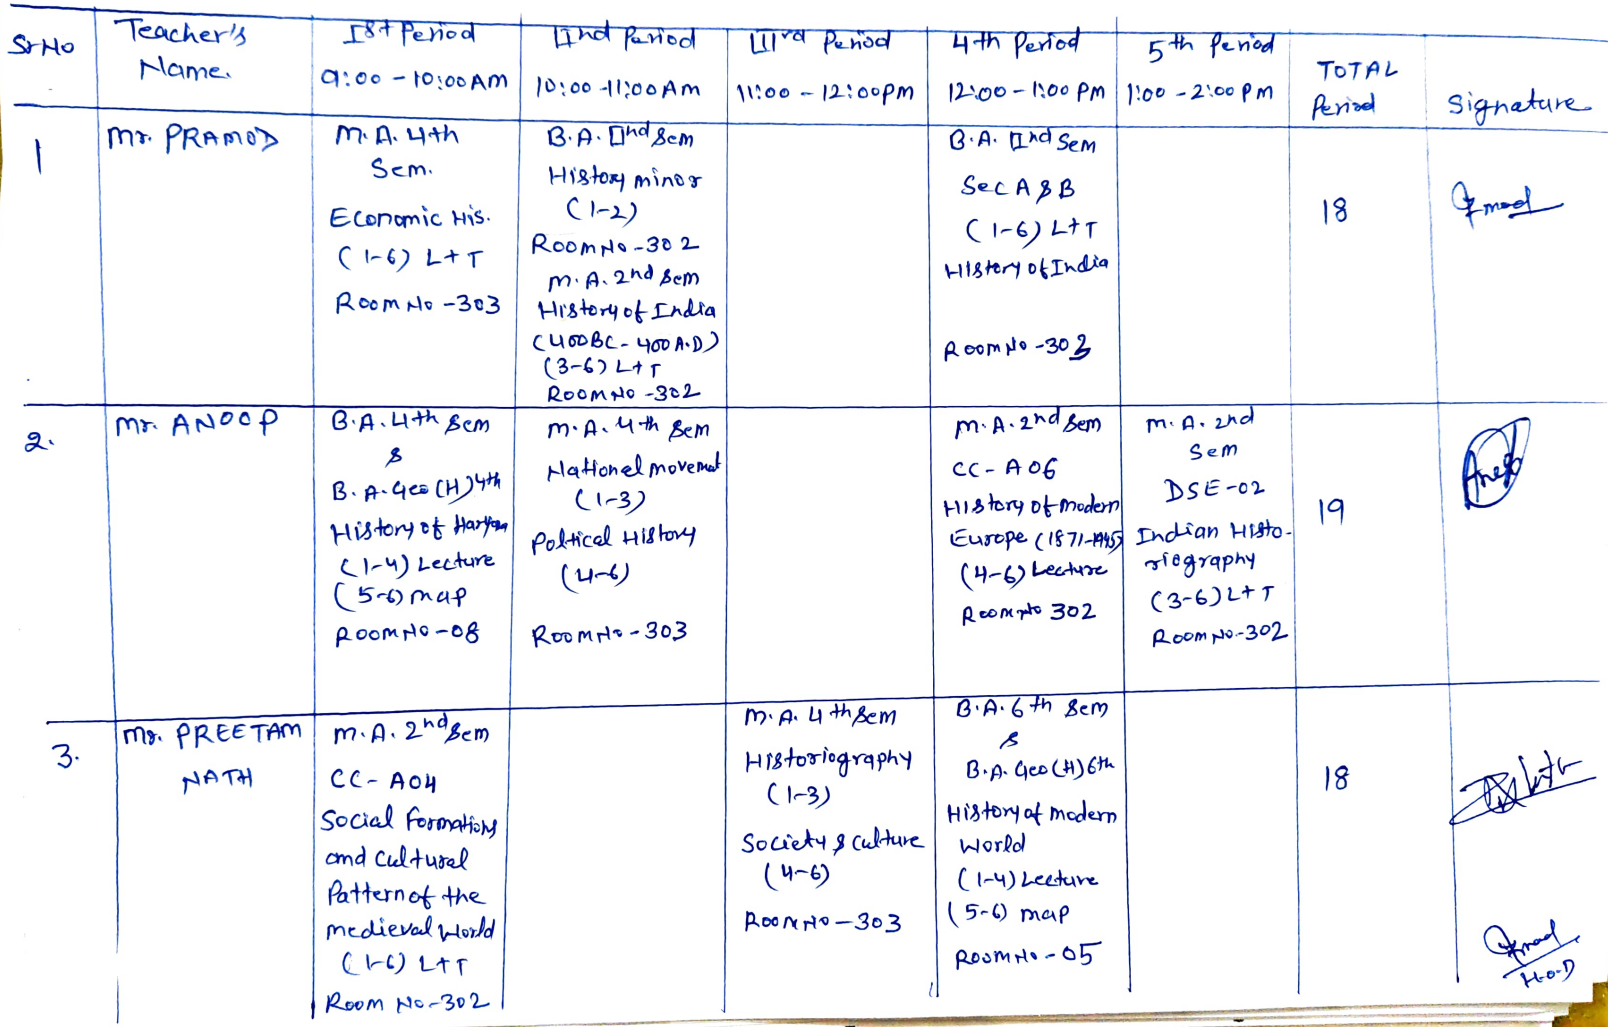 Sr No
Teacher's
Name.
Ist Period
9:00 - 10:00 AM
IInd Period
10:00 - 11:00 AM
IIIrd Period
11:00 - 12:00 PM
4th Period
12:00 - 1:00 PM
5th Period
1:00 - 2:00 PM
TOTAL
Period
Signature
1
Mr. PRAMOD
M.A. 4th
Sem.
Economic His.
(1-6) L+T
Room No - 303
B.A. IInd Sem
History minor
(1-2)
Room No - 302
M.A. 2nd Sem
History of India
(400 BC - 400 A.D)
(3-6) L+T
Room No - 302
B.A. IInd Sem
Sec A & B
(1-6) L+T
History of India
Room No - 303
18
2.
Mr. ANOOP
B.A. 4th Sem
&
B.A. Geo (H) 4th
History of Haryana
(1-4) Lecture
(5-6) map
Room No - 08
M.A. 4th Sem
Nationel movemat
(1-3)
Poltical History
(4-6)
Room No - 303
M.A. 2nd Sem
CC - A06
History of modern
Europe (1871-1945)
(4-6) Lecture
Room No 302
M.A. 2nd
Sem
DSE - 02
Indian Histo-
riography
(3-6) L+T
Room No - 302
19
Anoop
3.
Mr. PREETAM
NATH
M.A. 2nd Sem
CC - A04
Social Formations
and Cultural
Pattern of the
medieval World
(1-6) L+T
Room No - 302
M.A. 4th Sem
Historiography
(1-3)
Society & culture
(4-6)
Room No - 303
B.A. 6th Sem
&
B.A. Geo (H) 6th
History of modern
World
(1-4) Lecture
(5-6) map
Room No - 05
18
H.O.D